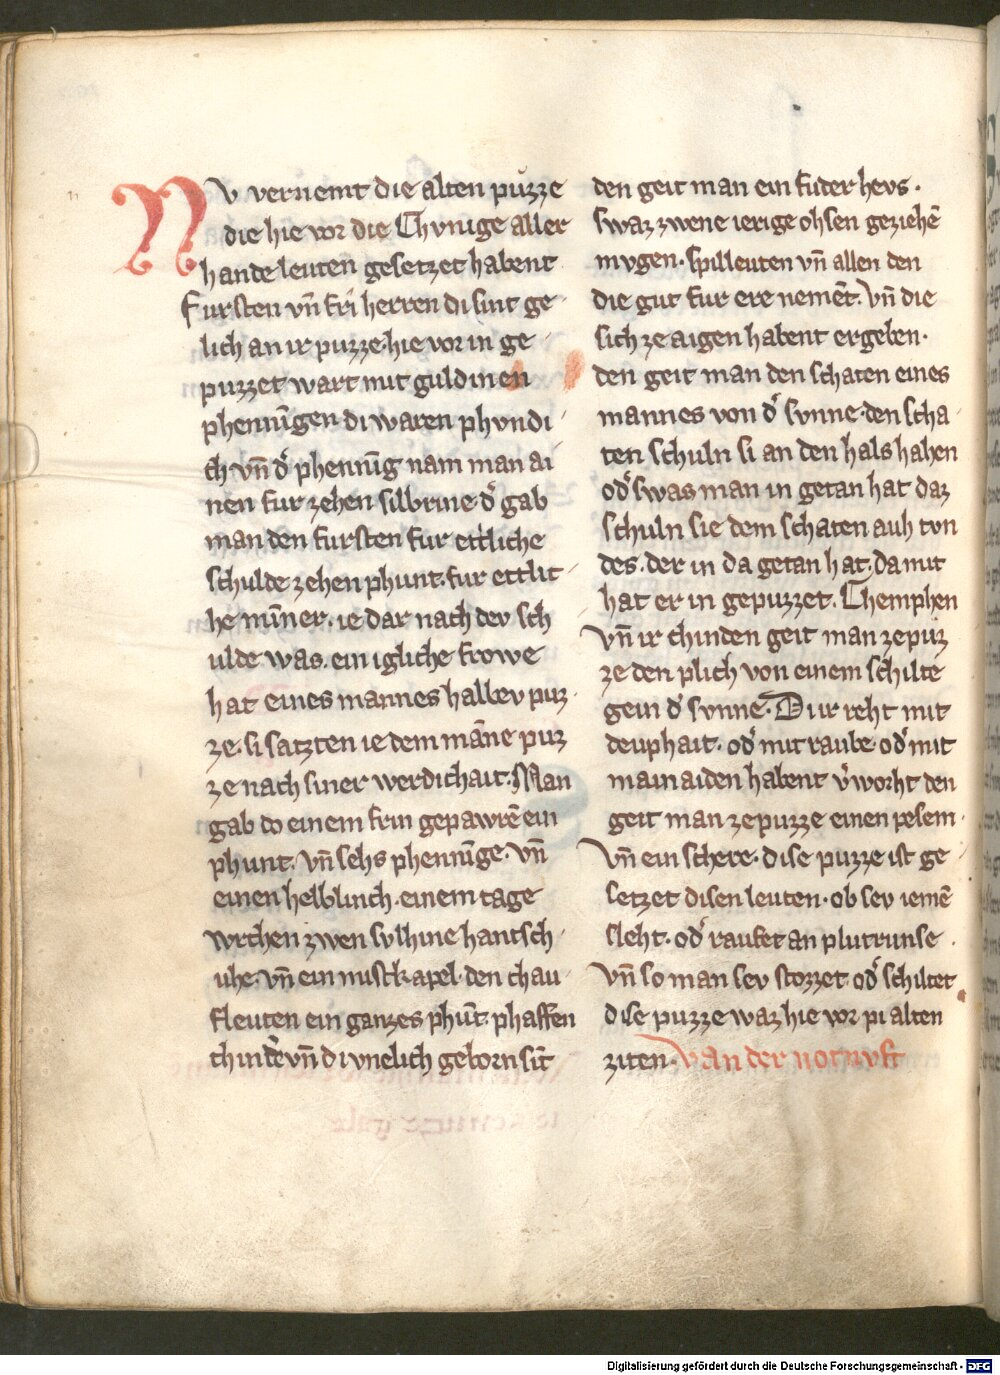 NV vernemt die alten puͦzze
die hie vor die Chvnige aller
hande leuten gesetzet habent
fursten vn̄ fri herren di sint ge-
lich an ir puzze·hie vor in ge-
puzzet wart mit guldinen
phenniͤgen di waren phvndi-
ch vn̄ d᷑ phenniͤg nam man ai
nen fur zehen silbrine·d᷑ gab
man den fursten fur ettliche
schulde zehen phunt·fur ettlit-
he miͤner·ie dar nach der sch
ulde was·ein igliche frowe
hat eines mannes halbev puz-
ze·si satzten ie dem māne puz
ze nach siner werdichait·Man
gab do einem frin gepawrē ein
phunt·vn̄ sehs phennīge·vn̄
einen helblinch·einem tage
wrchen zwen sylhine hantsch-
uhe·vn̄ ein mistkapel·den chau-
fleuten ein ganzes phūt·phaffen
chind᷑e vn̄ di vnelich geborn sīt
den geit man ein fuder hevs·
swaz zwene ierige ohsen geziehē
mvgen·spilleuten vn̄ allen den
die gut fur ere nemēt·vn̄ die
sich ze aigen habent ergeben·
den geit man den schaten eines
mannes von d᷑ svnne·den scha-
ten schuln si an den hals hahen
od᷑ swas man in getan hat daz
schuln sie dem schaten auh tvn
des·der in da getan hat·da mit
hat er in gepuzzet·Chemphen
vn̄ ir chinden geit man ze puz
ze den plich von einem schilte
gein d᷑ svnne·Dir reht mit
deuphait·od᷑ mit raube·od᷑ mit
mainaiden habent v᷑worht den
geit man ze puzze einen pesem·
vn̄ ein schere·dise puzze ist ge-
setzet disen leuten·ob sev iemē
sleht·od᷑ raufet an plutrunse·
vn̄ so man sev stozzet·od᷑ schiltet
dise puzze waz hie vor pi alten
ziten·Van der notnvft
Digitalisierung gefördert durch die Deutsche Forschungsgemeinschaft - DFG